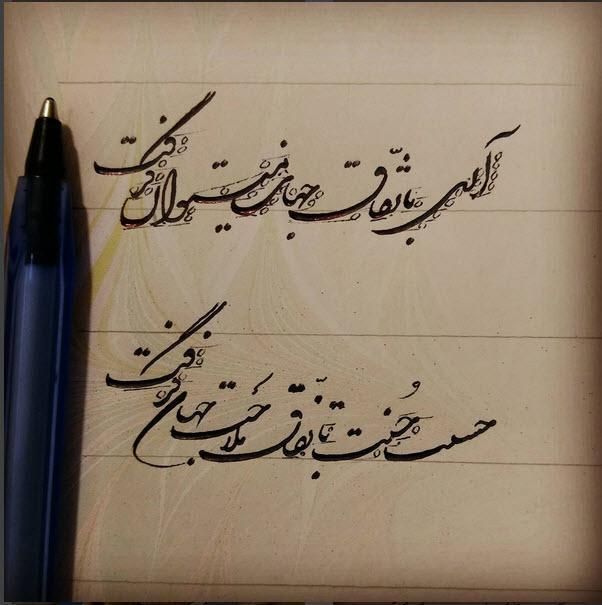 آری باتّفاق جهان میتوان گرفت
حسنت حُسنت باتّفاق ملاحت جهان گرفت